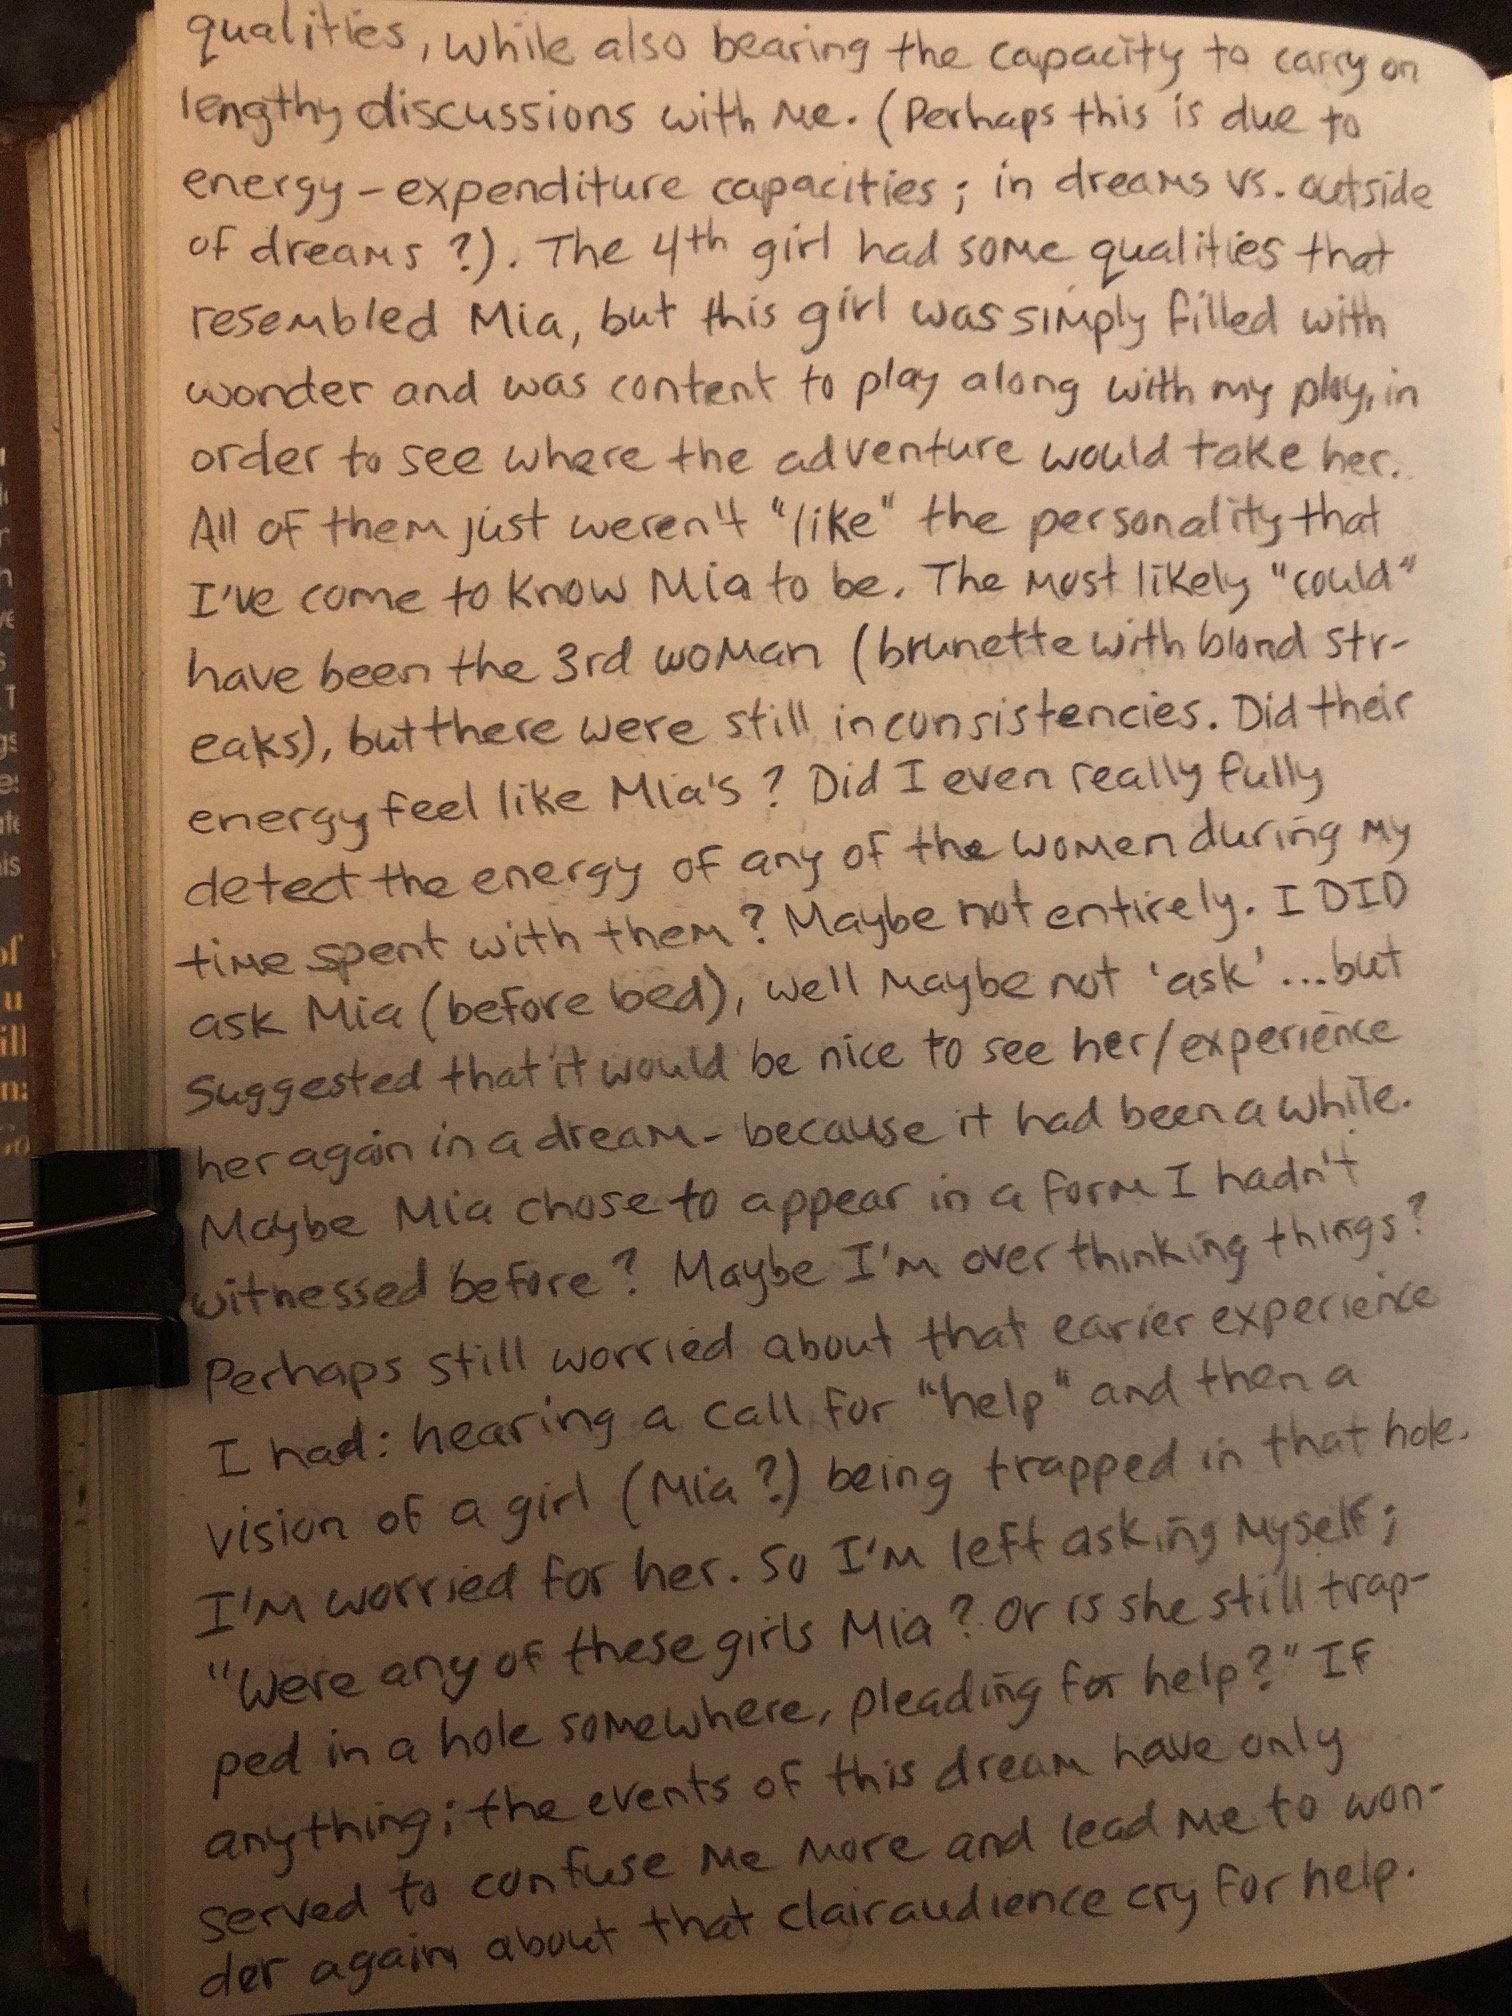 qualities, while also bearing the capacity to carry on
lengthy discussions with me. (Perhaps this is due to
energy-expenditure capacities; in dreams vs. outside
of dreams?). The 4th girl had some qualities that
resembled Mia, but this girl was simply filled with
wonder and was content to play along with my play, in
order to see where the adventure would take her.
All of them just weren't "like" the personality that
I've come to know Mia to be. The most likely "could"
have been the 3rd woman (brunette with blond str-
eaks), but there were still inconsistencies. Did their
energy feel like Mia's? Did I even really fully
detect the energy of any of the women during my
time spent with them? Maybe not entirely. I DID
ask Mia (before bed), well maybe not 'ask'...but
suggested that it would be nice to see her/experience
her again in a dream- because it had been a while.
Maybe Mia chose to appear in a form I hadn't
witnessed before? Maybe I'm over thinking things?
Perhaps still worried about that earier experience
I had: hearing a call for "help" and then a
vision of a girl (Mia?) being trapped in that hole.
I'm worried for her. So I'm left asking myself;
"Were any of these girls Mia? Or is she still trap-
ped in a hole somewhere, pleading for help?" If
anything; the events of this dream have only
served to confuse me more and lead me to won-
der again about that clairaudience cry for help.